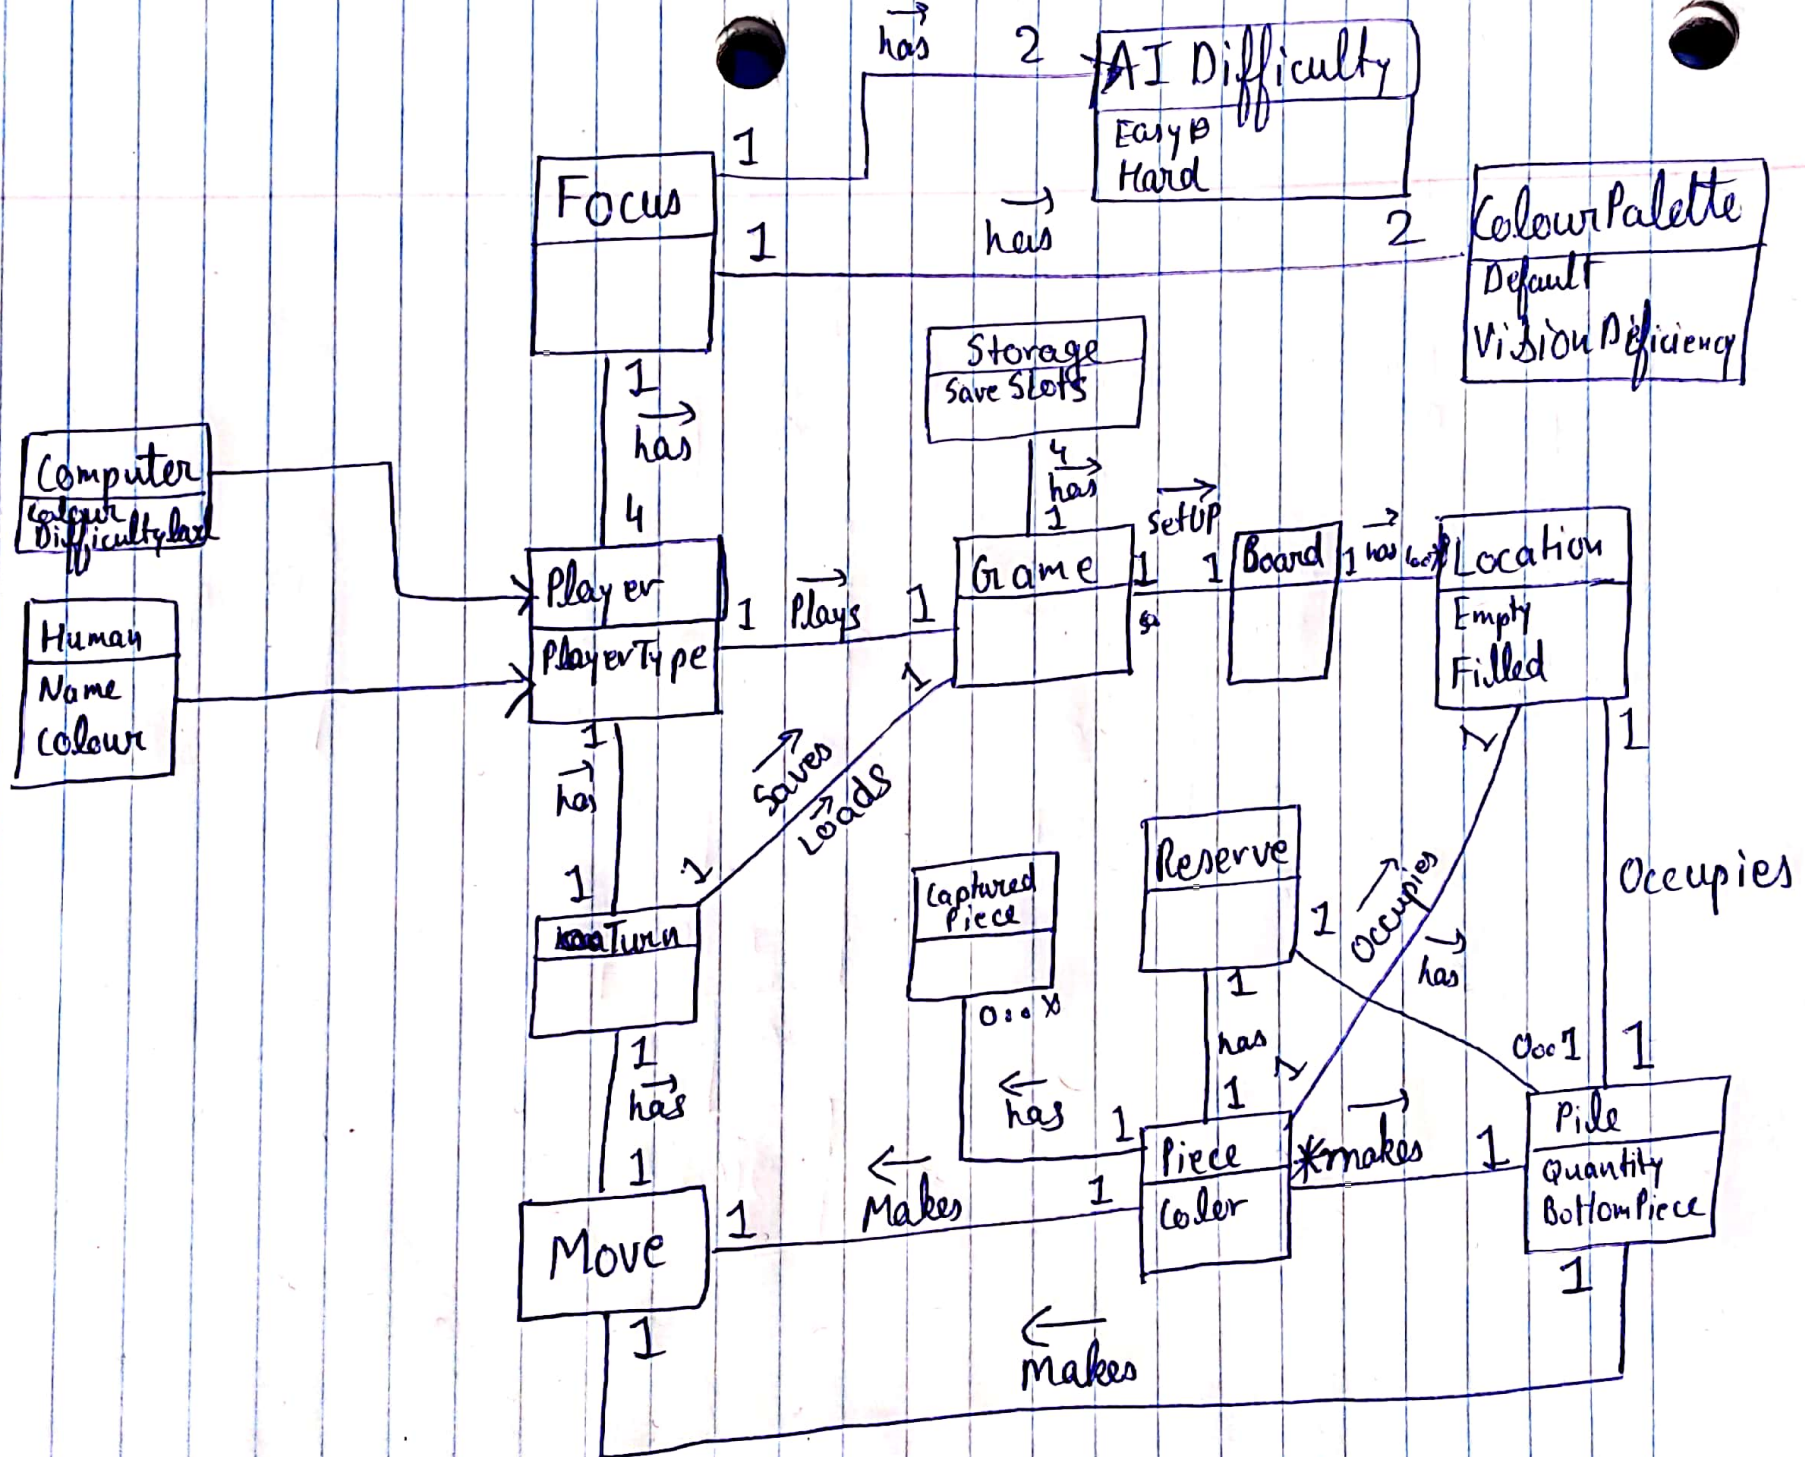 has
2
AI Difficulty
Easy
Hard
1
Focus
1
has
2
ColourPalette
Default
Vision Deficiency
1
has
4
Storage
Save Slots
4
has
1
Computer
Colour
Human
Name
Colour
Player
PlayerType
1
Plays
1
Game
1
SetUP
1
Board
1
has
Location
Empty
Filled
1
has
1
1
Saves
Loads
1
Turn
1
has
1
Captured
Piece
0..*
has
1
Reserve
1
1
has
1
1
Occupies
has
1
1
Occupies
1
0..1
Piece
Color
*
makes
1
Pile
Quantity
BottomPiece
1
Move
1
Makes
1
1
Makes